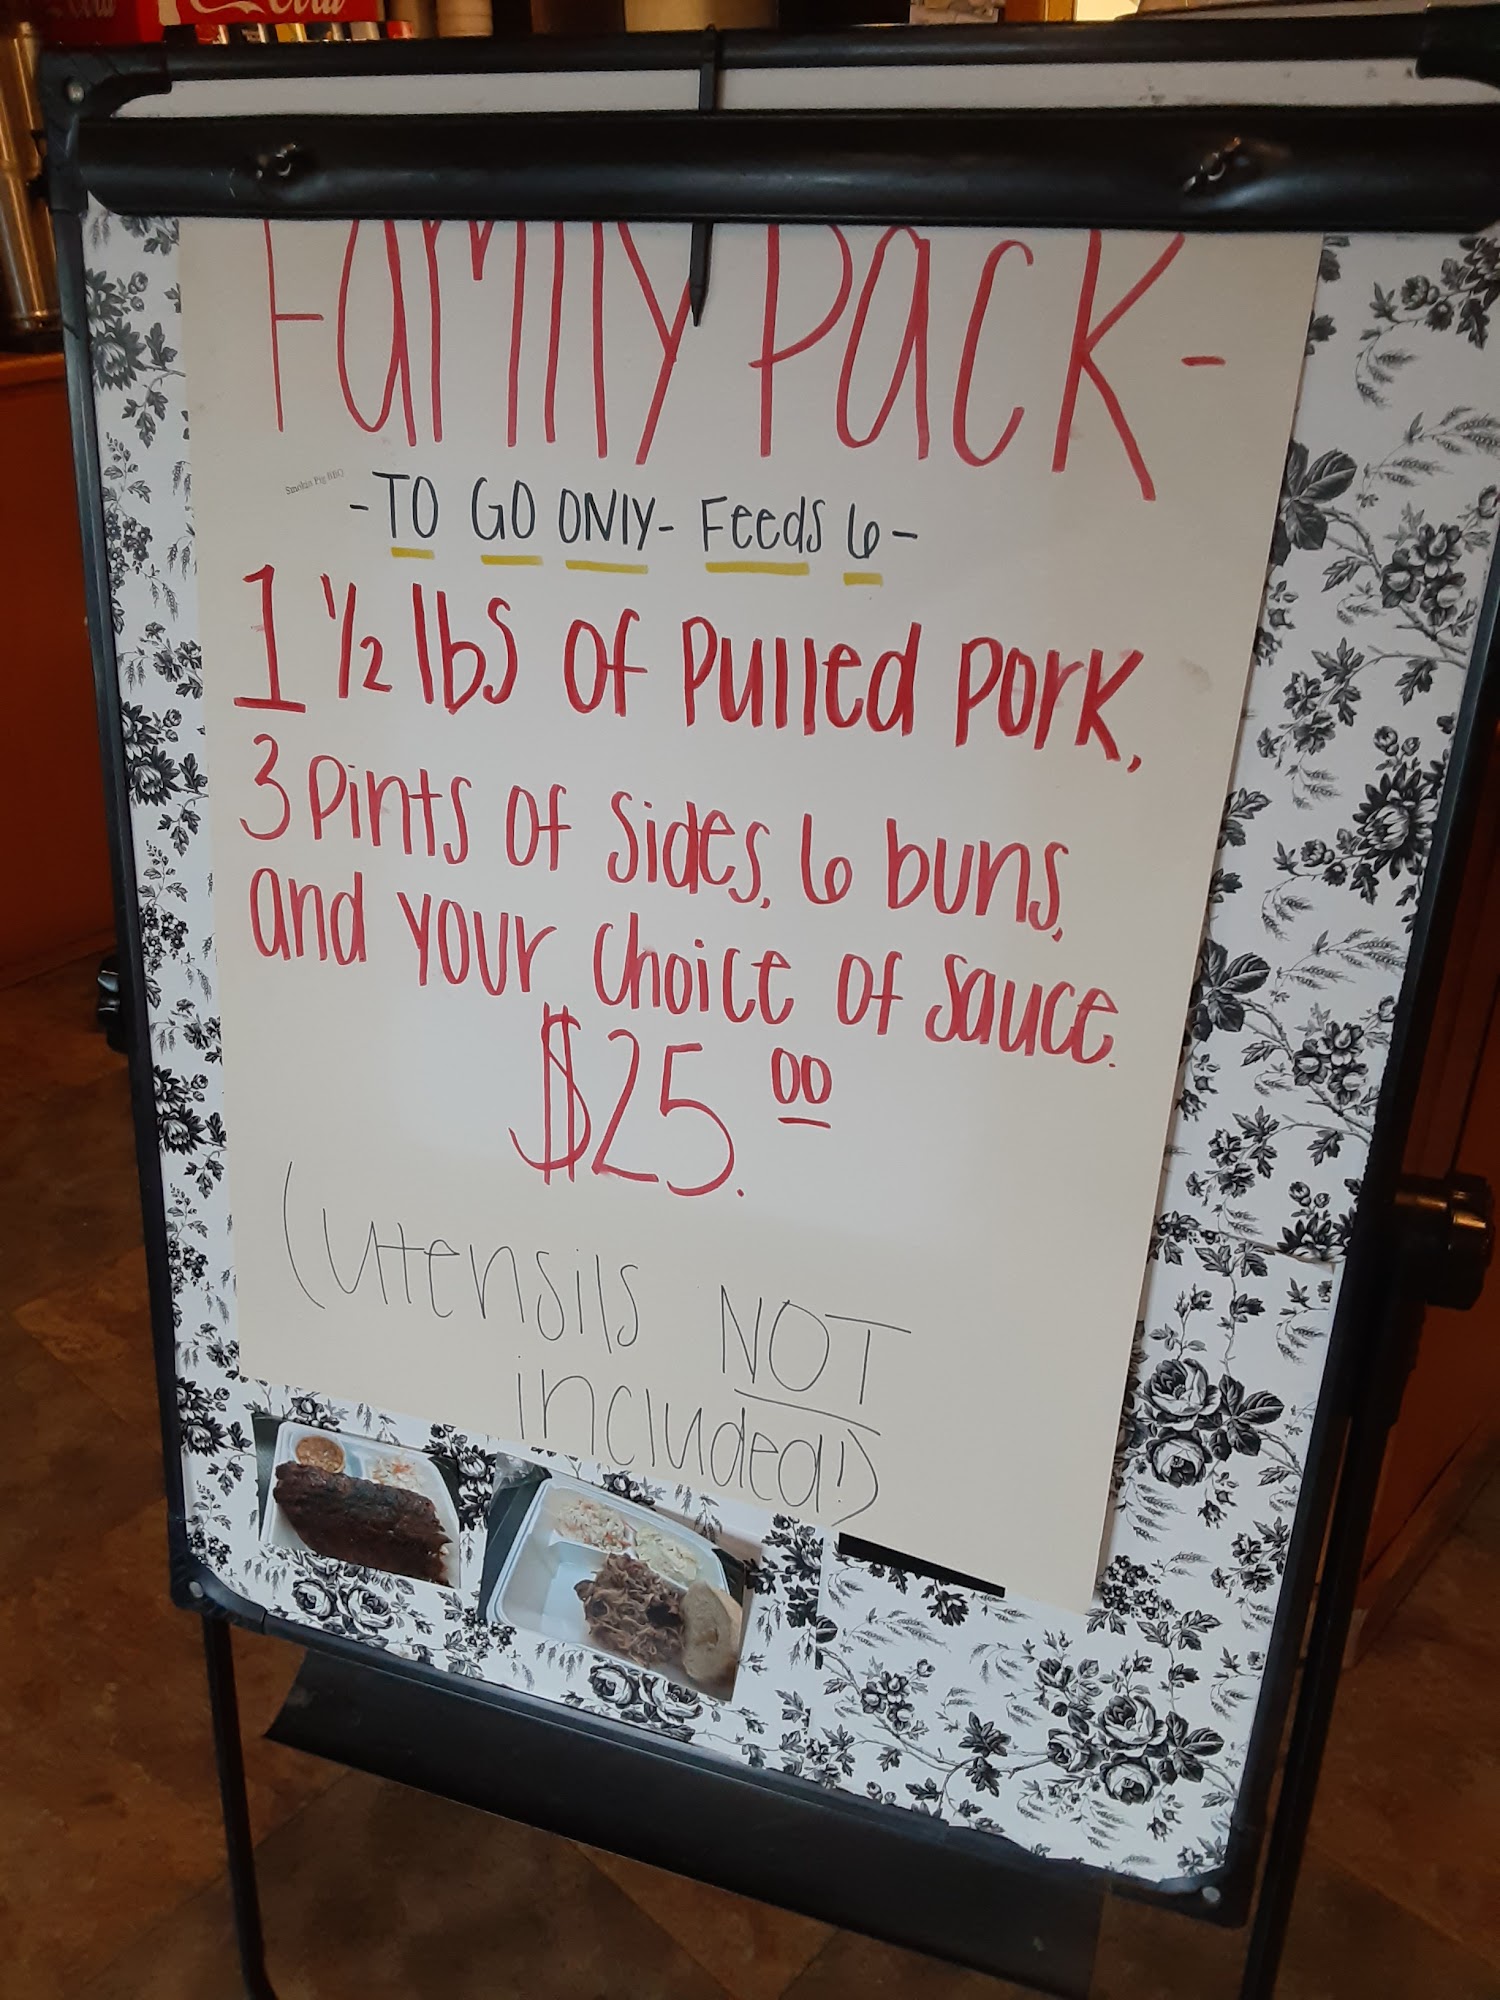 Cola
Family Pack -
Smokin Pig BBQ
- TO GO ONLY - Feeds 6 -
1 1/2 lbs of pulled pork,
3 pints of sides, 6 buns,
and your choice of sauce.
$25.00
(utensils NOT
included!)